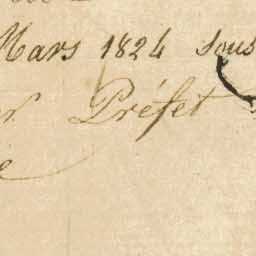 Mars 1824 sous
Préfet